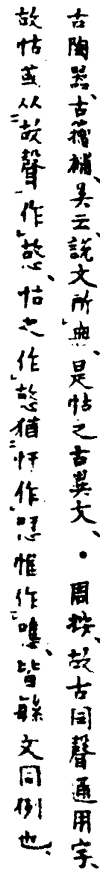 古陶器、古籀補、吳云、說文所無、是怙之古異文、・周按、故古同聲通用字、
故怙或从「故聲」作「㤱」、怙之作「㤱」猶「怀」作「㤳」惟作「㥣」皆繇文同例也、